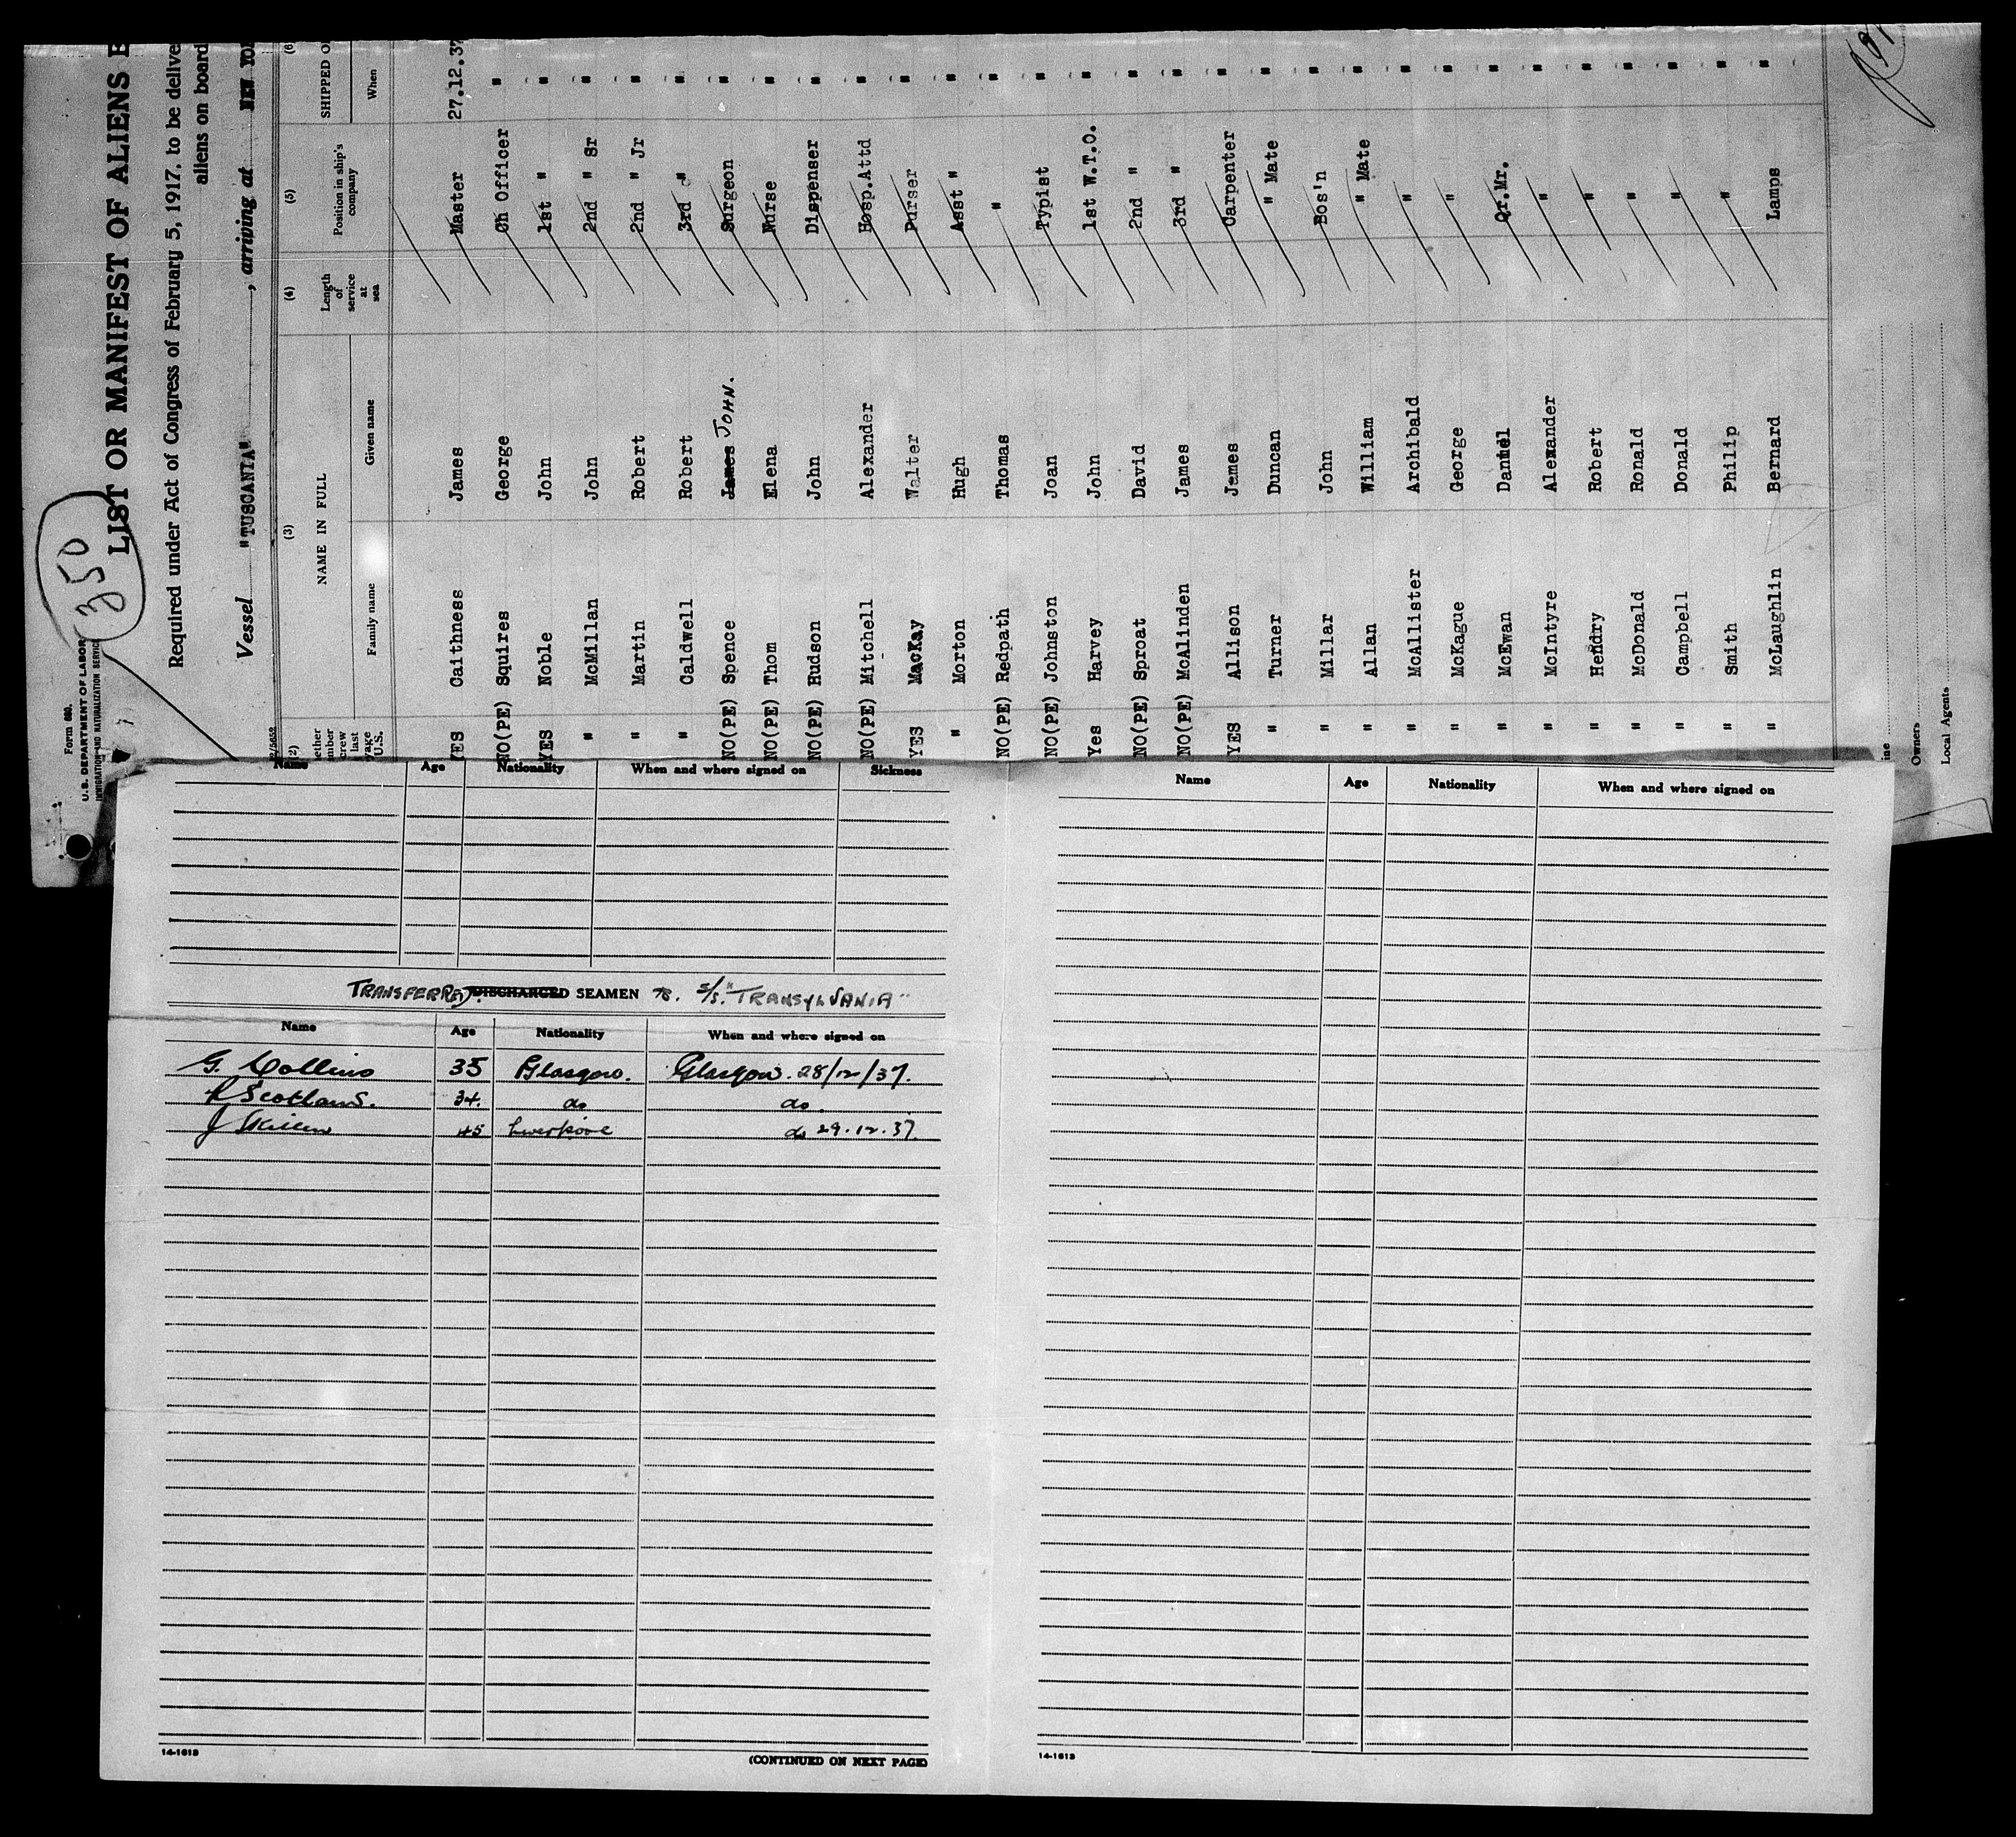 Form 680.
U. S. DEPARTMENT OF LABOR
IMMIGRATION AND NATURALIZATION SERVICE
350
LIST OR MANIFEST OF ALIENS E
Required under Act of Congress of February 5, 1917, to be delive
aliens on board
Vessel "TUSCANIA", arriving at NEW YOR
(2) (3) (4) (5) (6)
NAME IN FULL Length of service at sea Position in ship's company SHIPPED O
Family name Given name When
YES Caithness James Master 27.12.37
NO(PE) Squires George Ch Officer "
YES Noble John 1st " "
" McMillan John 2nd " Sr "
" Martin Robert 2nd " Jr "
" Caldwell Robert 3rd " "
NO(PE) Spence James JOHN. Surgeon "
NO(PE) Thom Elena Nurse "
NO(PE) Hudson John Dispenser "
NO(PE) Mitchell Alexander Hosp.Attd "
YES MacKay Walter Purser "
" Morton Hugh Asst " "
NO(PE) Redpath Thomas " "
NO(PE) Johnston Joan Typist "
Yes Harvey John 1st W.T.O. "
NO(PE) Sproat David 2nd " "
NO(PE) McAlinden James 3rd " "
YES Allison James Carpenter "
" Turner Duncan " Mate "
" Millar John Bos'n "
" Allan William " Mate "
" McAllister Archibald " "
" McKague George " "
" McEwan Daniel Qr.Mr. "
" McIntyre Alexander " "
" Hendry Robert " "
" McDonald Ronald " "
" Campbell Donald " "
" Smith Philip " "
" McLaughlin Bernard Lamps "
ine
Owners
Local Agents
Name Age Nationality When and where signed on Sickness
TRANSFERRED DISCHARGED SEAMEN TO. S/S. "TRANSYLVANIA"
Name Age Nationality When and where signed on
G. Collins 35 Glasgow. Glasgow. 28/12/37.
Scotland. 34. do do.
J 45 do 29.12.37.
14-1613
(CONTINUED ON NEXT PAGE)
Name Age Nationality When and where signed on
14-1613